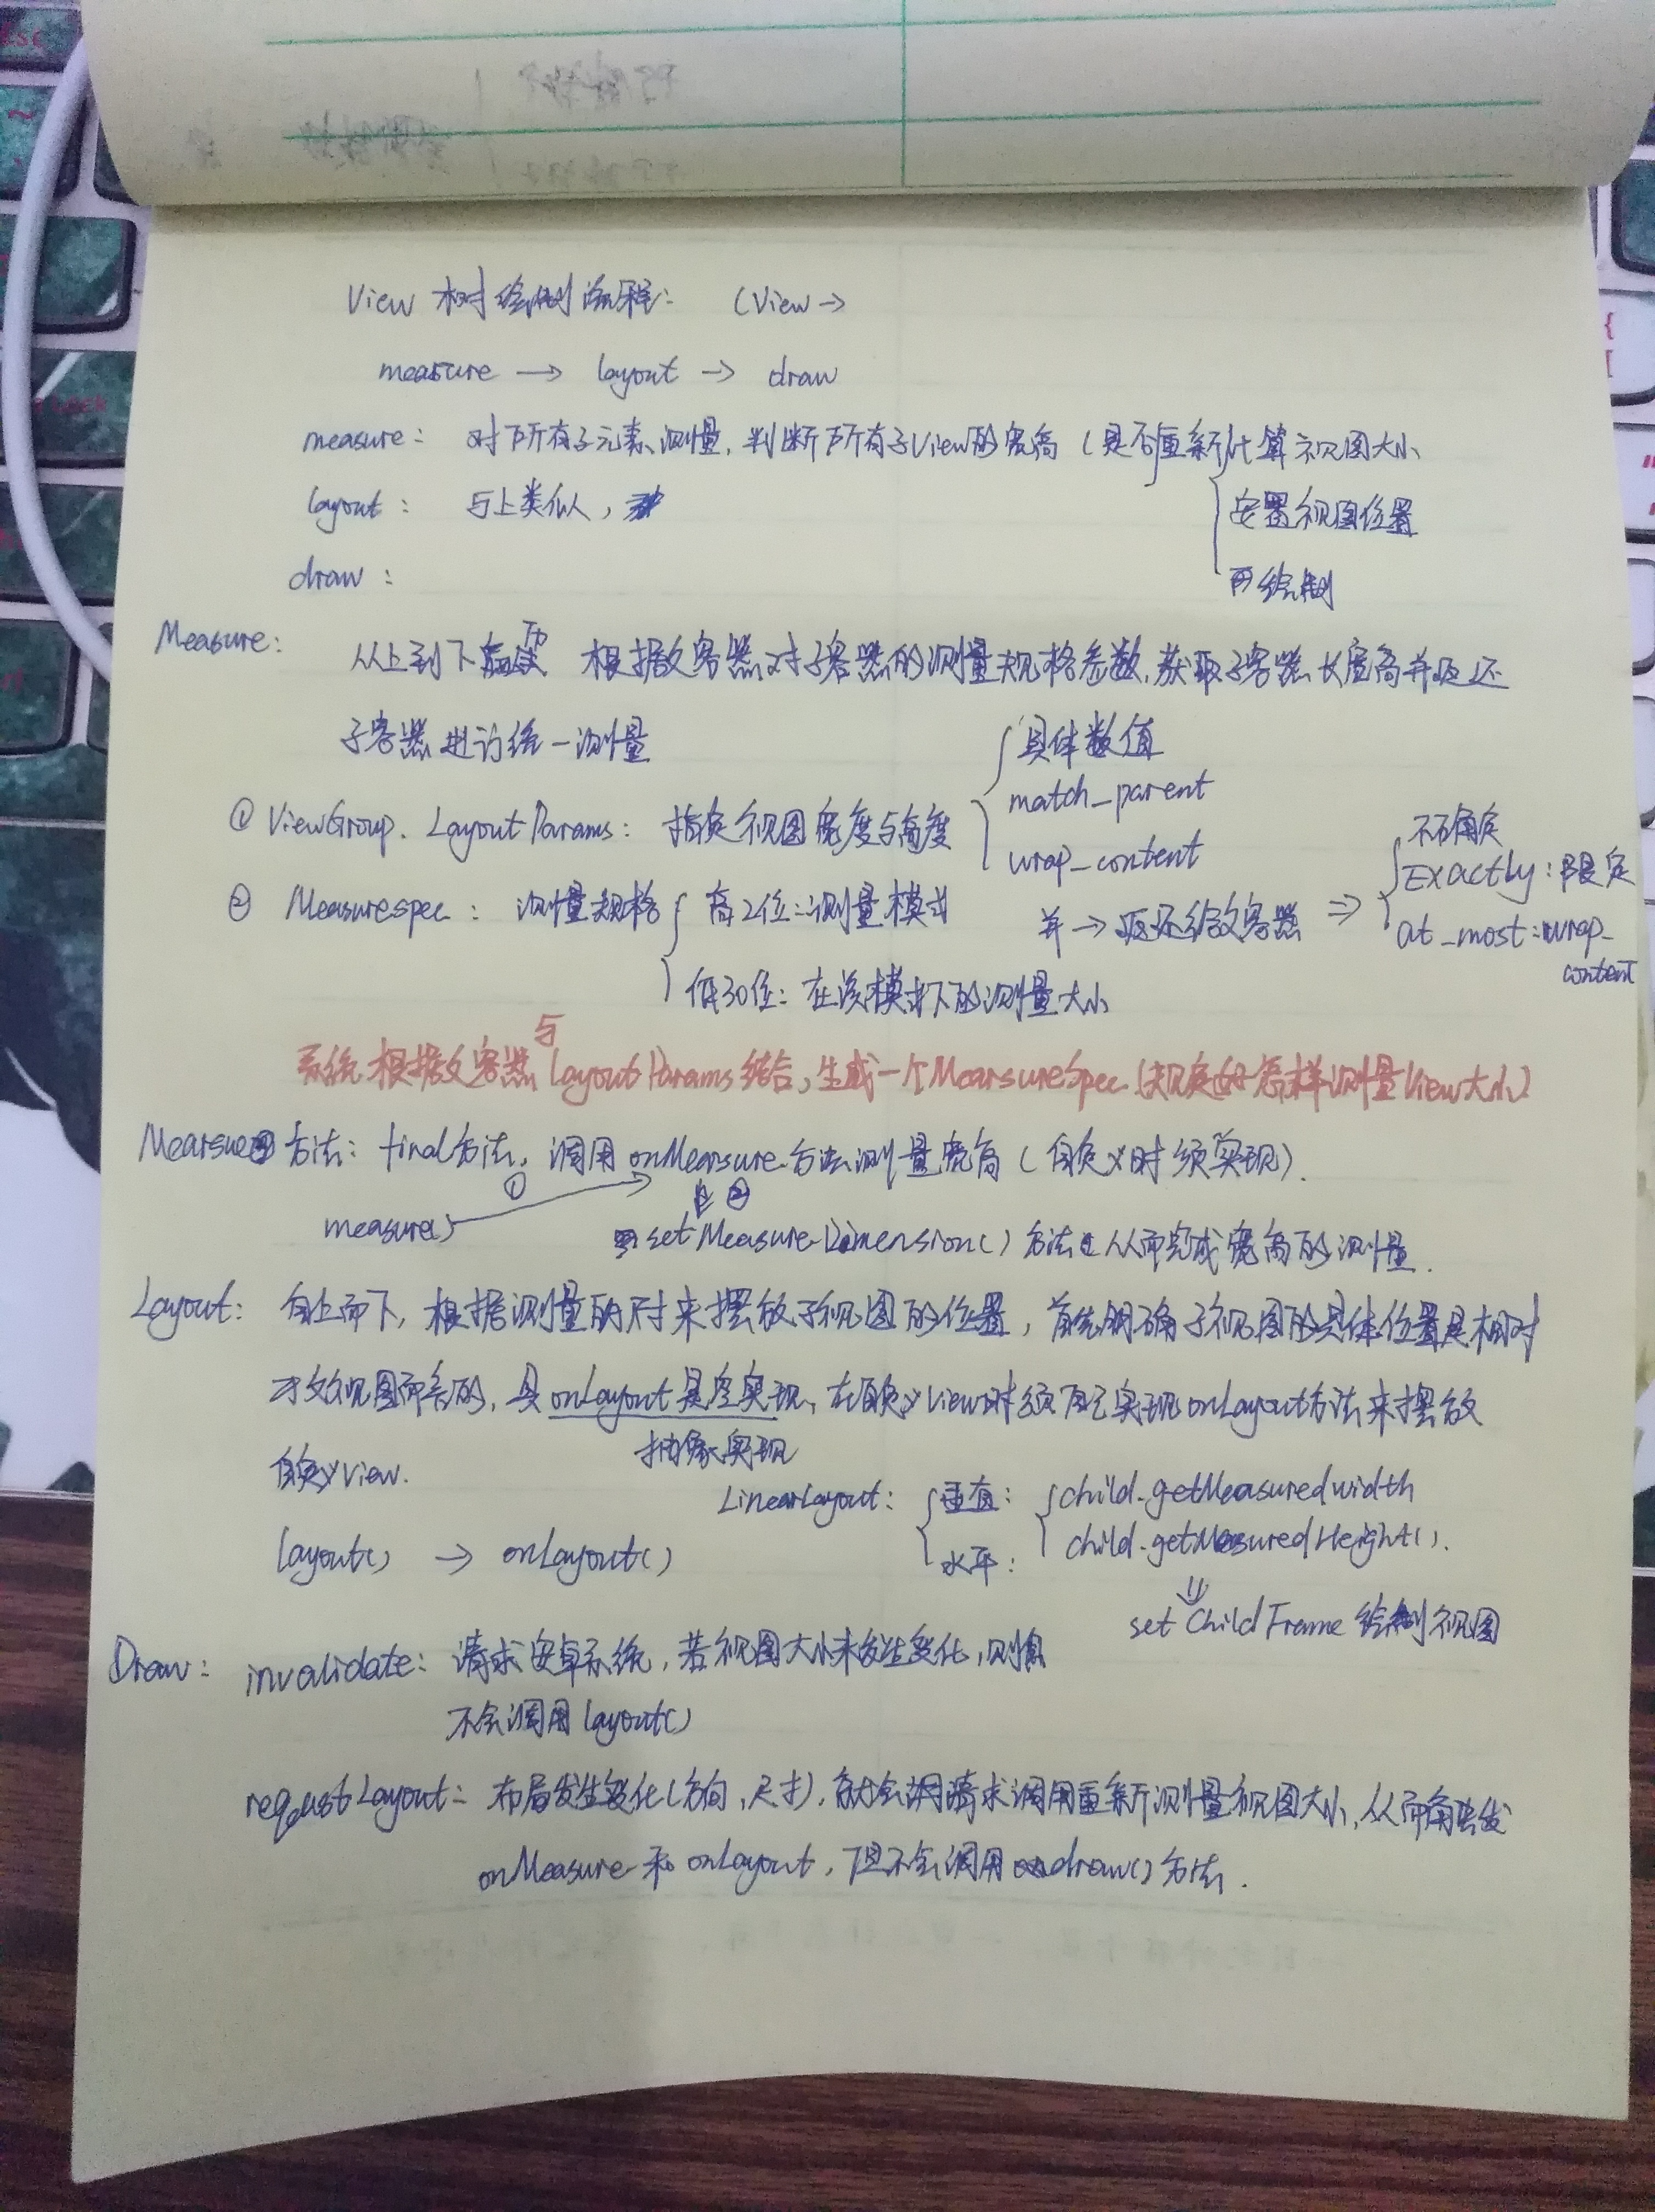 View 树绘制流程: (View →
measure → layout → draw
measure: 对所有子元素测量,判断所有子View的宽高 (是否重新计算视图大小
layout: 与上类似,
安置视图位置
draw:
再绘制
Measure: 从上到下 根据父容器对子容器的测量规格参数,获取子容器长宽高并返还
子容器进行统一测量
具体数值
match_parent
① ViewGroup. LayoutParams: 指定视图宽度与高度
wrap_content
② Measurespec: 测量规格 高2位:测量模式
低30位: 在该模式下的测量大小
并→返还给父容器 ⇒
不确定
Exactly: 限定
at_most: wrap_
content
系统根据父容器与LayoutParams结合,生成一个MearsureSpec (规定好怎样测量View大小)
方法: final方法, 调用 onMearsure方法测量宽高 (自定义时须实现).
① ②
measure() setMeasureDimension() 方法 从而完成宽高的测量.
Layout: 自上而下, 根据测量 来摆放子视图的位置, 首先明确子视图的具体位置是相对
于父视图而言的, 具onLayout是空实现, 在自定义View时须自己实现onLayout方法来摆放
抽象实现
自定义View.
LinearLayout: 垂直: child.getMeasuredwidth
水平: child.getMeasuredHeight().
layout() → onLayout()
⇓
setChildFrame 绘制视图
Draw: invalidate: 请求安卓系统, 若视图大小未发生变化, 则
不会调用layout()
requestLayout: 布局发生变化(方向,尺寸), 就会 请求调用重新测量视图大小, 从而触发
onMeasure 和 onLayout, 但不会调用 draw() 方法.